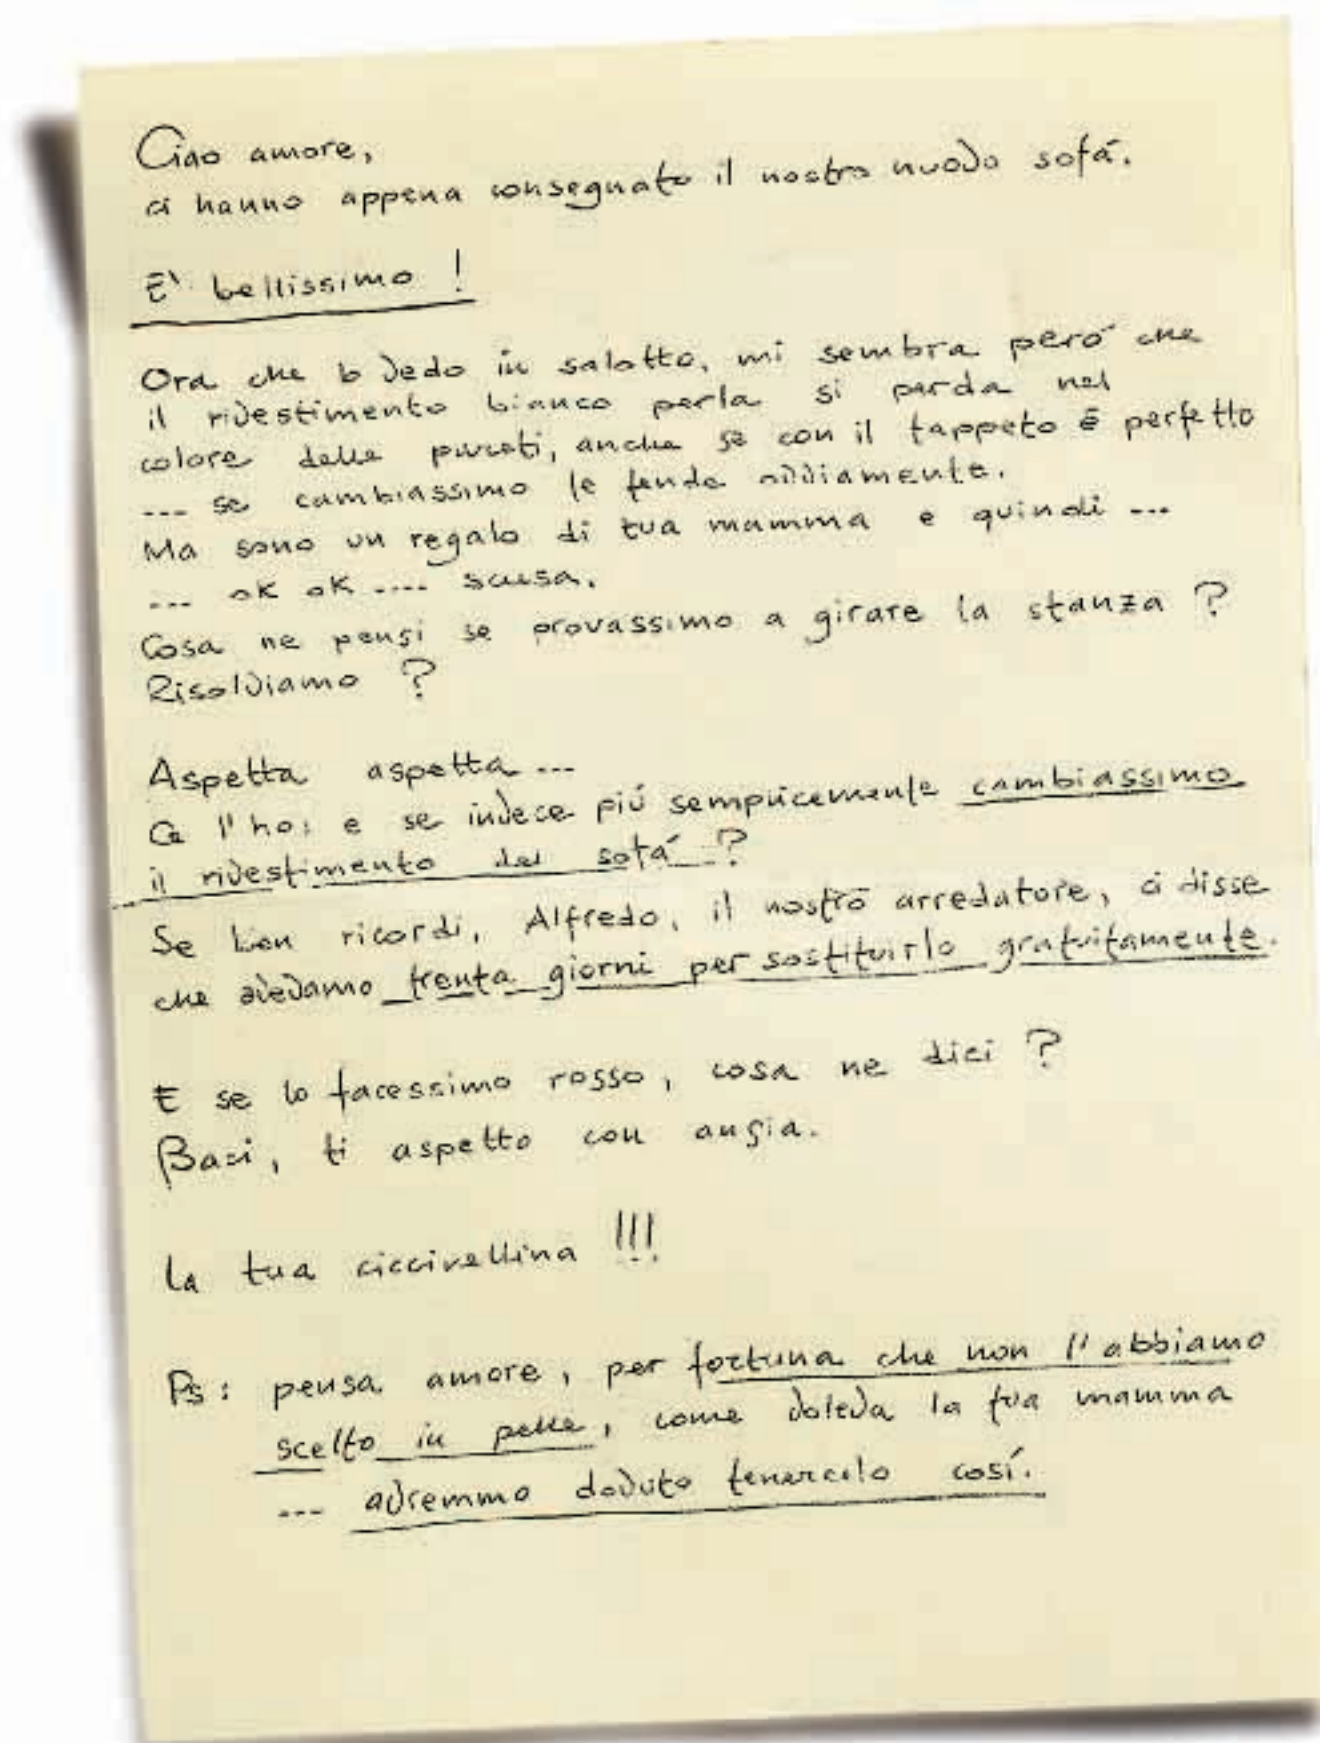 Ciao amore,
ci hanno appena consegnato il nostro nuovo sofá.
E' bellissimo !
Ora che lo vedo in salotto, mi sembra peró che
il rivestimento bianco perla si perda nel
colore delle pareti, anche se con il tappeto é perfetto
... se cambiassimo le tende ovviamente.
Ma sono un regalo di tua mamma e quindi ...
... ok ok .... scusa.
Cosa ne pensi se provassimo a girare la stanza ?
Risolviamo ?
Aspetta aspetta ...
Ce l'ho: e se invece piú semplicemente cambiassimo
il rivestimento del sofá ?
Se ben ricordi, Alfredo, il nostro arredatore, ci disse
che avevamo trenta giorni per sostituirlo gratuitamente.
E se lo facessimo rosso, cosa ne dici ?
Baci, ti aspetto con ansia.
La tua !!!
Ps: pensa amore, per fortuna che non l'abbiamo
scelto in pelle, come voleva la tua mamma
... avremmo dovuto tenercelo cosí.